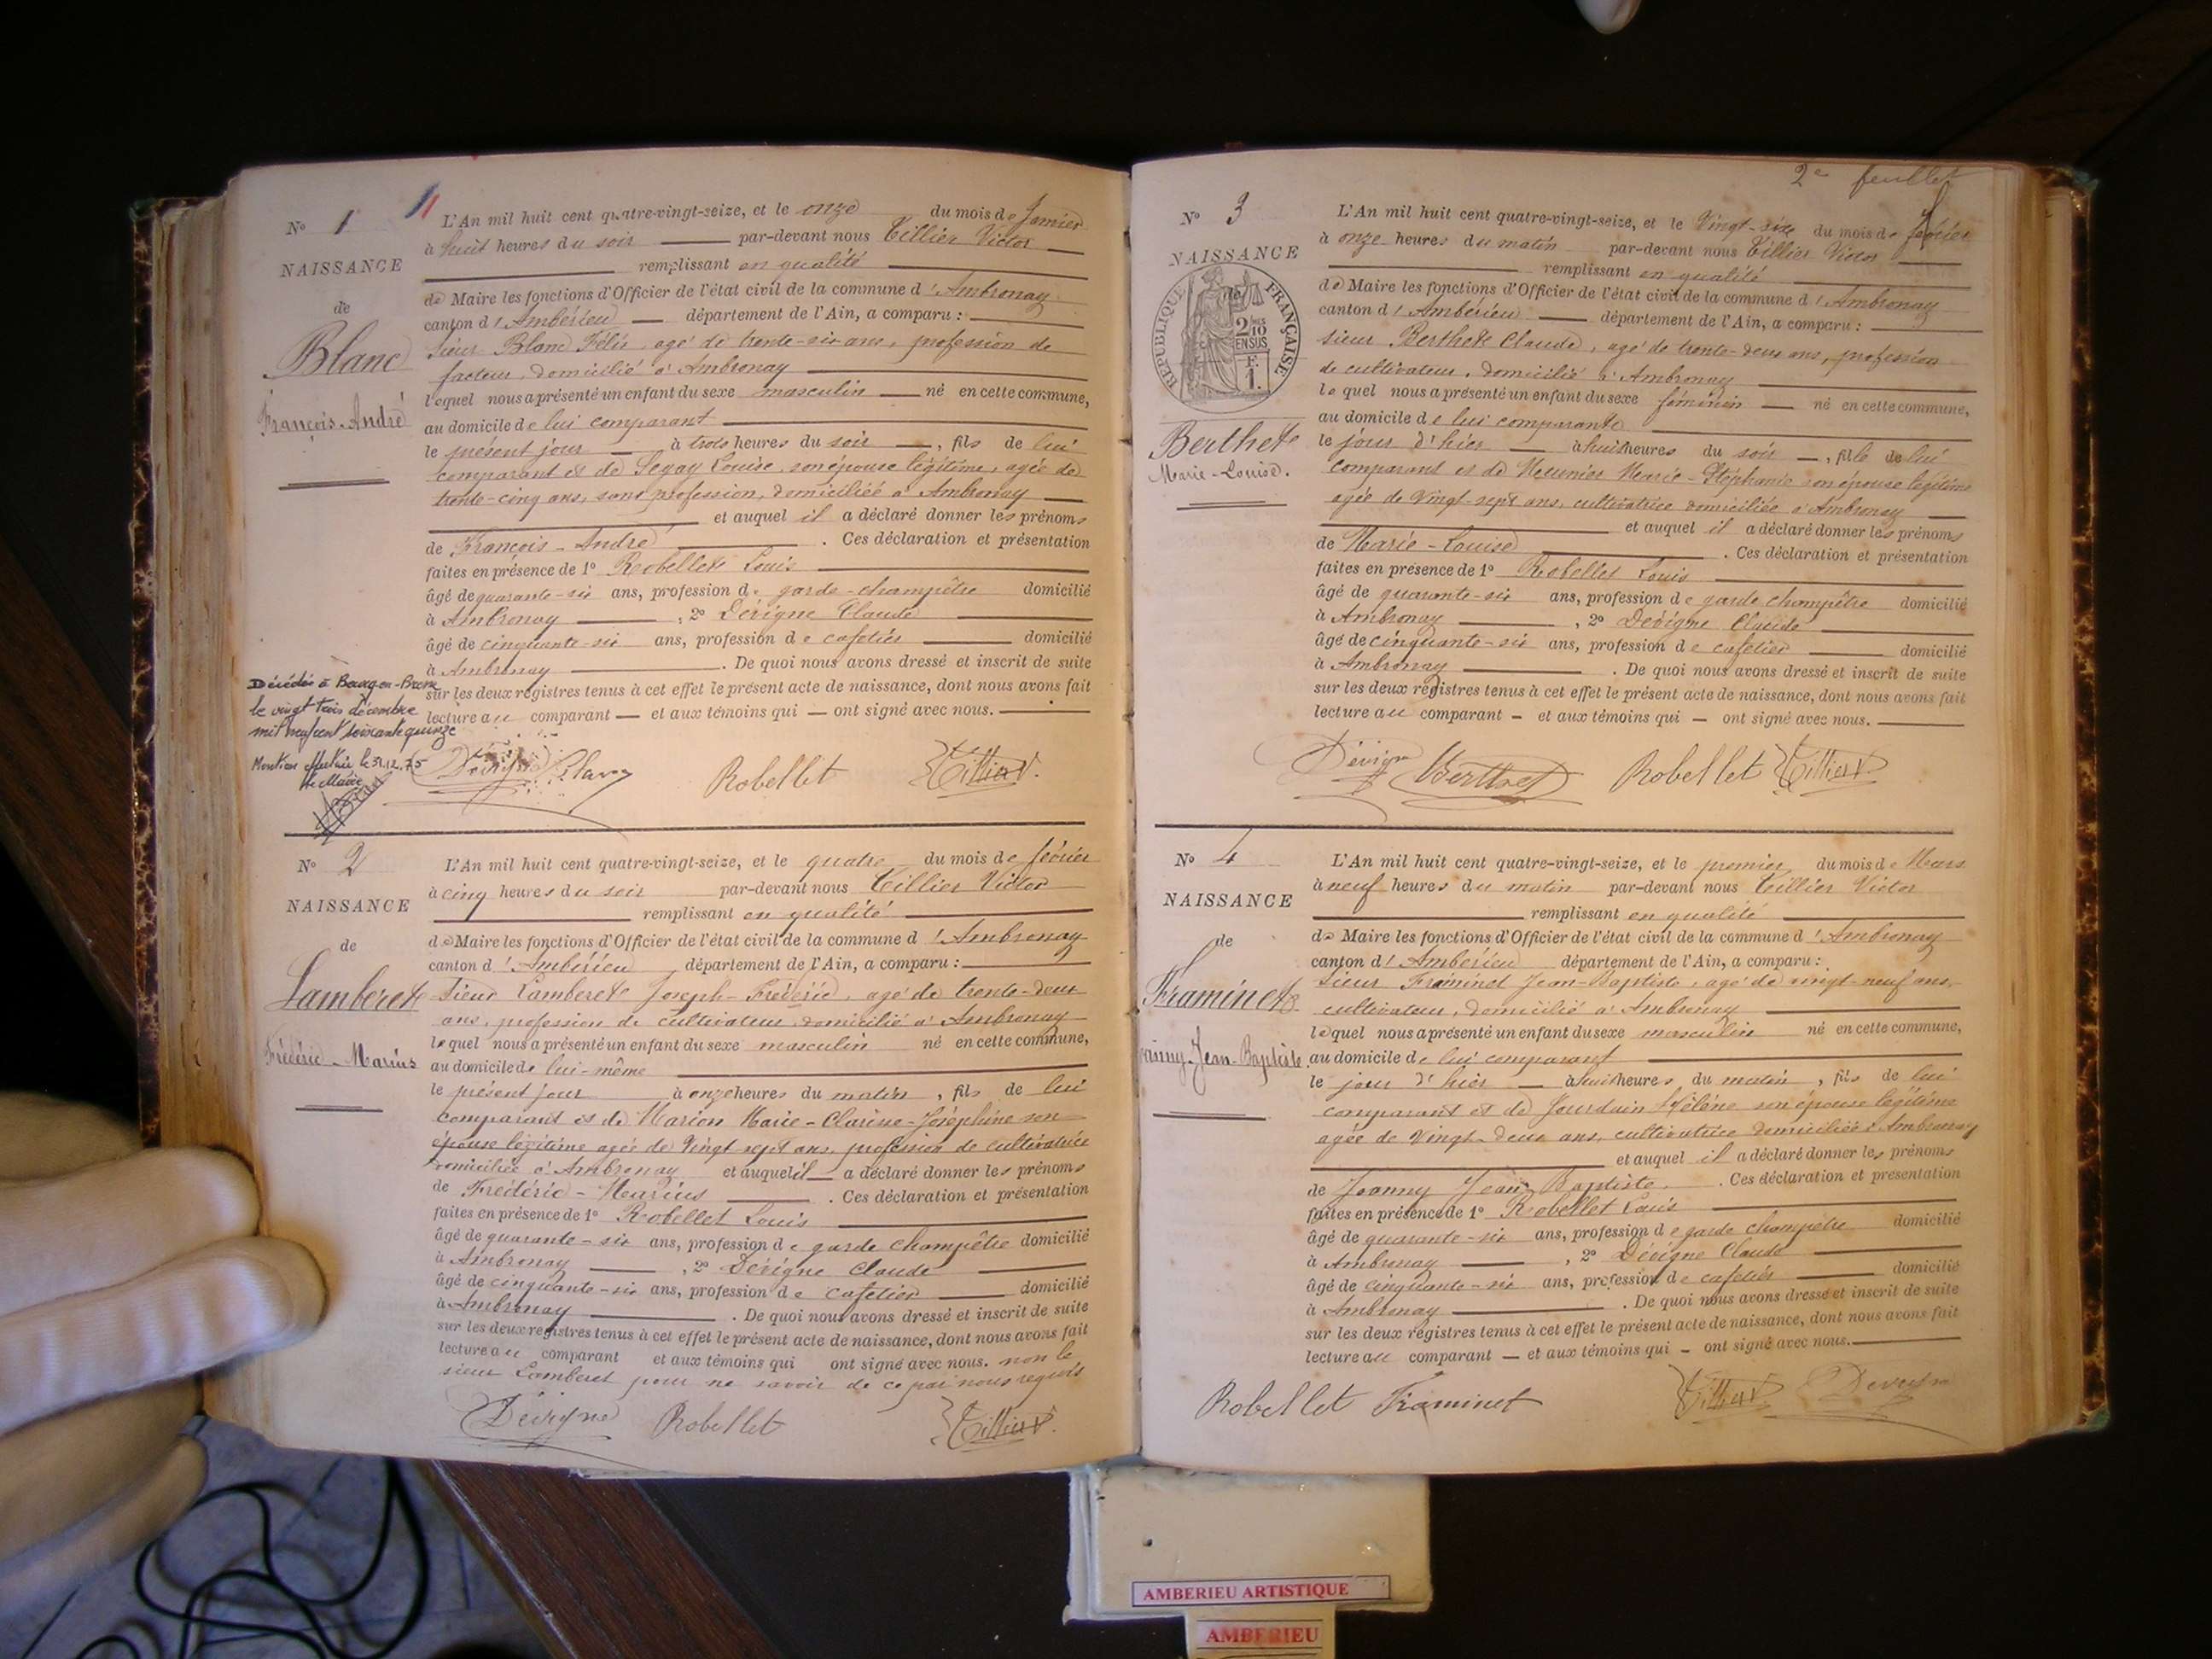 N° 1
NAISSANCE
de
Blanc
François-André
L'An mil huit cent quatre-vingt-seize, et le onze du mois de Janvier
à huit heures du soir par-devant nous Tillier Victor
remplissant en qualité
de Maire les fonctions d'Officier de l'état civil de la commune d'Ambronay
canton d'Ambérieu département de l'Ain, a comparu :
sieur Blanc Félix, agé de trente-six ans, profession de
facteur, domicilié à Ambronay
lequel nous a présenté un enfant du sexe masculin né en cette commune,
au domicile de lui comparant
le présent jour à trois heures du soir, fils de lui
comparant et de Segay Louise, son épouse légitime, agée de
trente-cinq ans, sans profession, domiciliée à Ambronay
et auquel il a déclaré donner les prénoms
de François-André. Ces déclaration et présentation
faites en présence de 1° Robellet Louis
âgé de quarante-six ans, profession de garde-champêtre domicilié
à Ambronay, 2° Dévigne Claude
âgé de cinquante-six ans, profession de cafetier domicilié
à Ambronay. De quoi nous avons dressé et inscrit de suite
sur les deux registres tenus à cet effet le présent acte de naissance, dont nous avons fait
lecture au comparant — et aux témoins qui — ont signé avec nous.
Décédé à Bourg-en-Bresse
le vingt trois décembre
mil neuf cent soixante quinze
Mention effectuée le 31.12.75
Le Maire
Dévigne Blanc Robellet Tillier V.
N° 2
NAISSANCE
de
Lamberet
Frédéric-Marius
L'An mil huit cent quatre-vingt-seize, et le quatre du mois de février
à cinq heures du soir par-devant nous Tillier Victor
remplissant en qualité
de Maire les fonctions d'Officier de l'état civil de la commune d'Ambronay
canton d'Ambérieu département de l'Ain, a comparu :
Sieur Lamberet Joseph-Frédéric, agé de trente-deux
ans, profession de cultivateur, domicilié à Ambronay
lequel nous a présenté un enfant du sexe masculin né en cette commune,
au domicile de lui-même
le présent jour à onze heures du matin, fils de lui
comparant et de Marion Marie-Clarisse-Joséphine son
épouse légitime agée de Vingt sept ans, profession de cultivatrice
domiciliée à Ambronay et auquel il a déclaré donner les prénoms
de Frédéric-Marius. Ces déclaration et présentation
faites en présence de 1° Robellet Louis
âgé de quarante-six ans, profession de garde champêtre domicilié
à Ambronay, 2° Dévigne Claude
âgé de cinquante-six ans, profession de cafetier domicilié
à Ambronay. De quoi nous avons dressé et inscrit de suite
sur les deux registres tenus à cet effet le présent acte de naissance, dont nous avons fait
lecture au comparant et aux témoins qui ont signé avec nous. non le
sieur Lamberet pour ne savoir de ce par nous requis
Dévigne Robellet Tillier V.
2e feuillet
N° 3
NAISSANCE
de
REPUBLIQUE FRANÇAISE
2/10 EN SUS
F. 1.
Berthet
Marie-Louise.
L'An mil huit cent quatre-vingt-seize, et le Vingt-six du mois de février
à onze heures du matin par-devant nous Tillier Victor
remplissant en qualité
de Maire les fonctions d'Officier de l'état civil de la commune d'Ambronay
canton d'Ambérieu département de l'Ain, a comparu :
sieur Berthet Claude, agé de trente-deux ans, profession
de cultivateur, domicilié à Ambronay
lequel nous a présenté un enfant du sexe féminin né en cette commune,
au domicile de lui comparant
le jour d'hier à huit heures du soir, fille de lui
comparant et de Meunier Marie-Stéphanie son épouse légitime
agée de Vingt-sept ans, cultivatrice domiciliée à Ambronay
et auquel il a déclaré donner les prénoms
de Marie-Louise. Ces déclaration et présentation
faites en présence de 1° Robellet Louis
âgé de quarante-six ans, profession de garde champêtre domicilié
à Ambronay, 2° Dévigne Claude
âgé de cinquante-six ans, profession de cafetier domicilié
à Ambronay. De quoi nous avons dressé et inscrit de suite
sur les deux registres tenus à cet effet le présent acte de naissance, dont nous avons fait
lecture au comparant — et aux témoins qui — ont signé avec nous.
Dévigne Berthet Robellet Tillier V.
N° 4
NAISSANCE
de
Framinet
Joanny-Jean-Baptiste.
L'An mil huit cent quatre-vingt-seize, et le premier du mois de Mars
à neuf heures du matin par-devant nous Tillier Victor
remplissant en qualité
de Maire les fonctions d'Officier de l'état civil de la commune d'Ambronay
canton d'Ambérieu département de l'Ain, a comparu :
Sieur Framinet Jean-Baptiste, agé de vingt-neuf ans,
cultivateur, domicilié à Ambronay
lequel nous a présenté un enfant du sexe masculin né en cette commune,
au domicile de lui comparant
le jour d'hier à huit heures du matin, fils de lui
comparant et de Jourdain Hélène son épouse légitime
agée de Vingt-deux ans, cultivatrice domiciliée à Ambronay
et auquel il a déclaré donner les prénoms
de Joanny Jean Baptiste. Ces déclaration et présentation
faites en présence de 1° Robellet Louis
âgé de quarante-six ans, profession de garde champêtre domicilié
à Ambronay, 2° Dévigne Claude
âgé de cinquante-six ans, profession de cafetier domicilié
à Ambronay. De quoi nous avons dressé et inscrit de suite
sur les deux registres tenus à cet effet le présent acte de naissance, dont nous avons fait
lecture au comparant — et aux témoins qui — ont signé avec nous.
Robellet Framinet Tillier V. Dévigne
AMBERIEU ARTISTIQUE
AMBERIEU